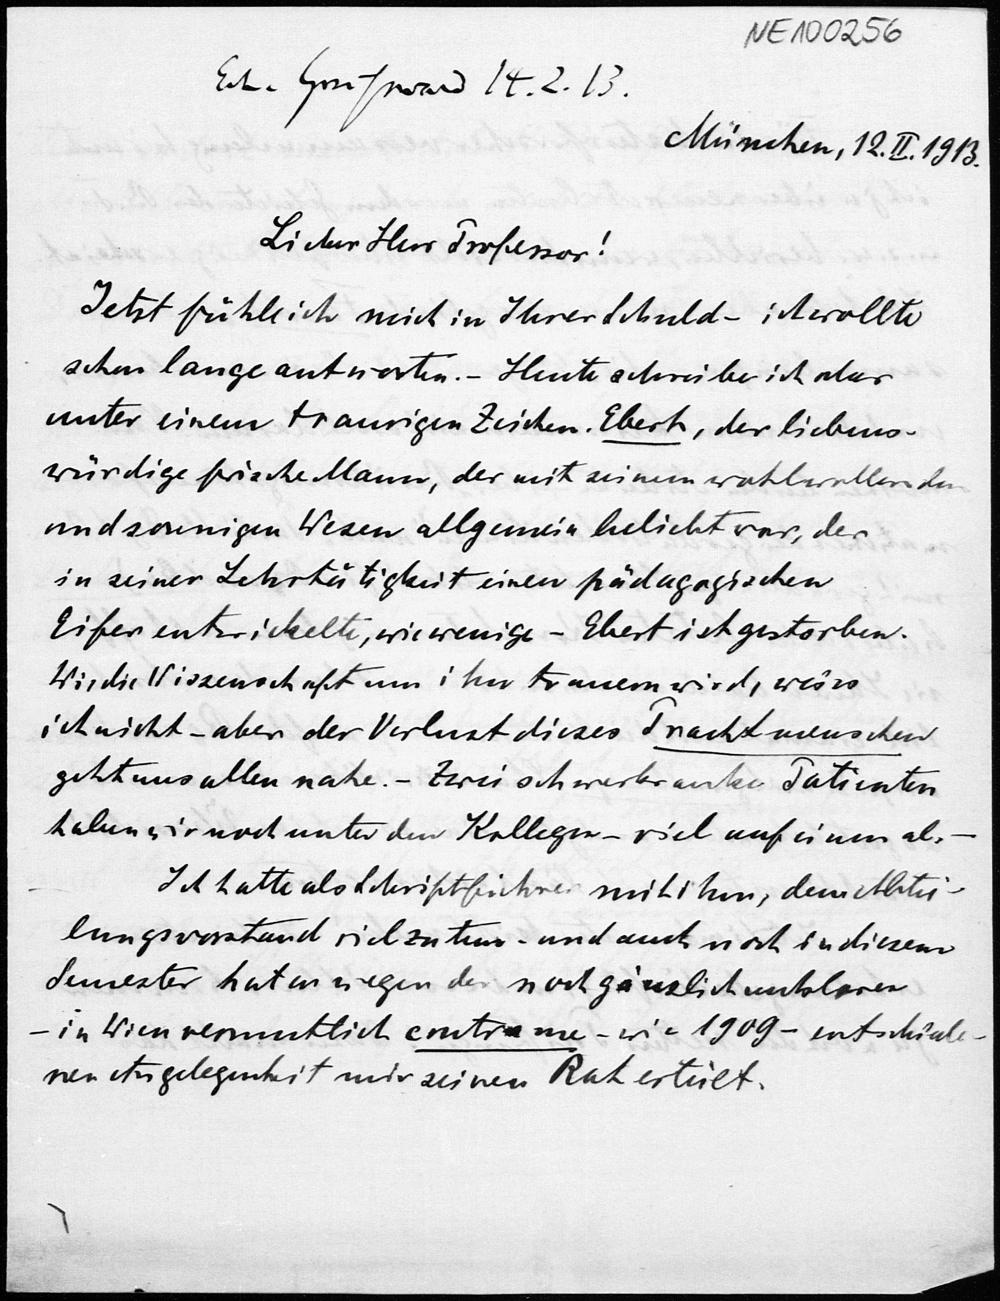 NE100256
Erh. Greifswald 14.2.13.
München, 12.II.1913.
Lieber Herr Professor!
Jetzt fühle ich mich in Ihrer Schuld – ich wollte
schon lange antworten. – Heute schreibe ich aber
unter einem traurigen Zeichen. Ebert, der liebens-
würdige frische Mann, der mit seinem wohlwollenden
und sonnigen Wesen allgemein beliebt war, der
in seiner Lehrtätigkeit einen pädagogischen
Eifer entwickelte, wie wenige – Ebert ist gestorben.
Wie die Wissenschaft um ihn trauern wird, weiss
ich nicht – aber der Verlust dieses Prachtmenschen
geht uns allen nahe. – Zwei schwerkranke Patienten
haben wir noch unter den Kollegen – viel auf einmal. –
Ich hatte als Schriftführer mit ihm, dem Abtei-
lungsvorstand viel zu tun – und auch noch in diesem
Semester hat er wegen der noch gänzlich unklaren
– in Wien vermutlich contra me – wie 1909 – entschiede-
nen Angelegenheit mir seinen Rat erteilt.